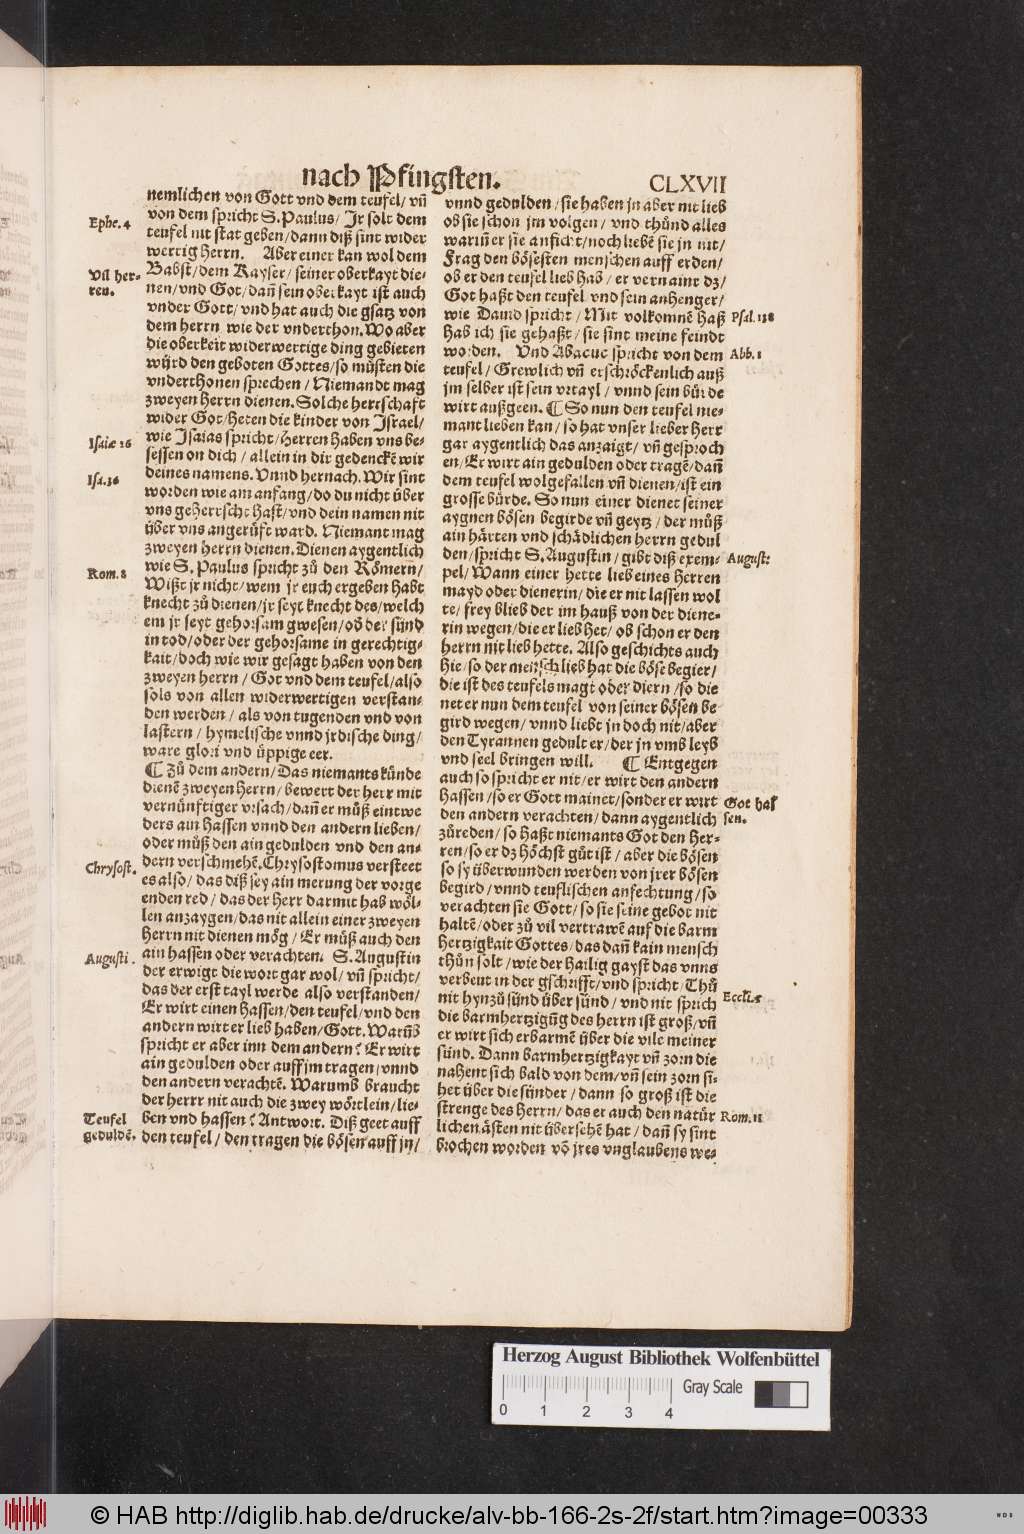 nach Pfingsten. CLXVII
nemlichen von Gott vnd dem teufel/ vn̄
von dem spricht S. Paulus/ Jr solt dem
Ephe. 4
teufel nit stat geben/dann diß sint wider
wertig Herrn. Aber einer kan wol dem
Babst/dem Kayser/ seiner oberkayt die-
Vn̄ her-
nen/vnd Got/dan̄ sein oberkayt ist auch
ren.
vnder Gott/ vnd hat auch die gsatz von
dem herrn wie der vnderthon. Wo aber
die oberkeit widerwertige ding gebieten
würd den geboten Gottes/so müsten die
vnderthonen sprechen/ Niemandt mag
zweyen Herrn dienen. Solche herrschaft
wider Got/heten die kinder von Jsrael/
wie Jsaias spricht/herren haben vns be-
Isaiæ 26
sessen on dich/ allein in dir gedenckē wir
deines namens. Vnnd hernach. Wir sint
Isa. 36
worden wie am anfang/do du nicht über
vns geherrscht hast/vnd dein namen nit
über vns angerüft ward. Niemant mag
zweyen herrn dienen. Dienen aygentlich
wie S. Paulus spricht zů den Römern/
Rom. 8
Wißt jr nicht/wem jr euch ergeben habt
knecht zů dienen/jr seyt knecht des/welch
em jr seyt gehorsam gwesen/od der sünd
in tod/oder der gehorsame in gerechtig-
kait/doch wie wir gesagt haben von den
zweyen herrn/ Got vnd dem teufel/also
sols von allen widerwertigen verstan-
den werden/ als von tugenden vnd von
lastern/ hymelische vnnd jrdische ding/
ware glori vnd üppige eer.
¶ Zů dem andern/Das niemants künde
dienē zweyen Herrn/ bewert der herr mit
vernünftiger vrsach/dan̄ er můß eintwe
ders ain hassen vnnd den andern lieben/
oder můß den ain gedulden vnd den an-
dern verschmehē. Chrysostomus versteet
Chrysost.
es also/ das diß sey ain merung der vorge
enden red/ das der Herr darmit hab wöl-
len anzaygen/das nit allein einer zweyen
Herrn nit dienen mög/ Er můß auch den
ain hassen oder verachten. S. Augustin
Augusti.
der erwigt die wort gar wol/ vn̄ spricht/
das der erst tayl werde also verstanden/
Er wirt einen hassen/den teufel/vnd den
andern wirt er lieb haben/Gott. Warūb
spricht er aber inn dem andern? Er wirt
ain gedulden oder auff jm tragen/vnnd
den andern verachtē. Warumb braucht
der herrr nit auch die zwey wörtlein/lie-
ben vnd hassen? Antwort. Diß geet auff
Teufel
den teufel/ den tragen die bösen auff jn/
geduldē.
vnnd gedulden/sie haben jn aber nit lieb
ob sie schon jm volgen/ vnd thůnd alles
warin̄ er sie anficht/noch liebē sie jn nit/
Frag den bösesten menschen auff erden/
ob er den teufel lieb hab/ er vernaint dz/
Got haßt den teufel vnd sein anhenger/
wie Dauid spricht/ Mit volkomnē haß
Psal. 138
hab ich sie gehaßt/ sie sint meine feindt
worden. Vnd Abacuc spricht von dem
Abb. 1
teufel/ Grewlich vn̄ erschröckenlich auß
jm selber ist sein vrtayl/ vnnd sein bürde
wirt außgeen. ¶ So nun den teufel nie-
mant lieben kan/ so hat vnser lieber Herr
gar aygentlich das anzaigt/ vn̄ gesproch
en/Er wirt ain gedulden oder tragē/dan̄
dem teufel wolgefallen vn̄ dienen/ist ein
grosse bürde. So nun einer dienet seiner
aygnen bösen begirde vn̄ geytz/ der můß
ain härten vnd schädlichen herrn gedul
den/spricht S. Augustin/ gibt diß exem-
August:
pel/Wann einer hette lieb eines Herren
mayd oder dienerin/die er nit lassen wol
te/frey blieb der im hauß von der diene-
rin wegen/die er lieb het/ ob schon er den
herrn nit lieb hette. Also geschichts auch
hie/so der mensch lieb hat die böse begier/
die ist des teufels magt oder diern/so die
net er nun dem teufel von seiner bösen be
gird wegen/ vnnd liebt jn doch nit/aber
den Tyrannen gedult er/der jn vmb leyb
vnd seel bringen will. ¶ Entgegen
auch so spricht er nit/er wirt den andern
hassen/so er Gott mainet/sonder er wirt
Got has
den andern verachten/ dann aygentlich
sen.
zůreden/ so haßt niemants Got den Her-
ren/so er dz höchst gůt ist/ aber die bösen
so sy überwunden werden von jrer bösen
begird/ vnnd teuflischen anfechtung/so
verachten sie Gott/so sie seine gebot nit
haltē/oder zů vil vertrawē auf die barm
hertzigkait Gottes/das dan̄ kain mensch
thůn solt/wie der hailig gayst das vnns
verbeut in der gschrifft/vnd spricht/Thů
nit hynzů sünd über sünd/ vnd nit sprich
Eccli. 5
die barmhertzigūg des herrn ist groß/vn̄
er wirt sich erbarmē über die vile meiner
sünd. Dann barmhertzigkayt vn̄ zorn die
nahent sich bald von dem/vn̄ sein zorn si-
het über die sünder/ dann so groß ist die
strenge des Herrn/das er auch den natür
Rom. 11
lichen ästen nit übersehē hat/ dan̄ sy sint
brochen worden vō jres vnglaubens we-
Herzog August Bibliothek Wolfenbüttel
Gray Scale
0 1 2 3 4
© HAB http://diglib.hab.de/drucke/alv-bb-166-2s-2f/start.htm?image=00333